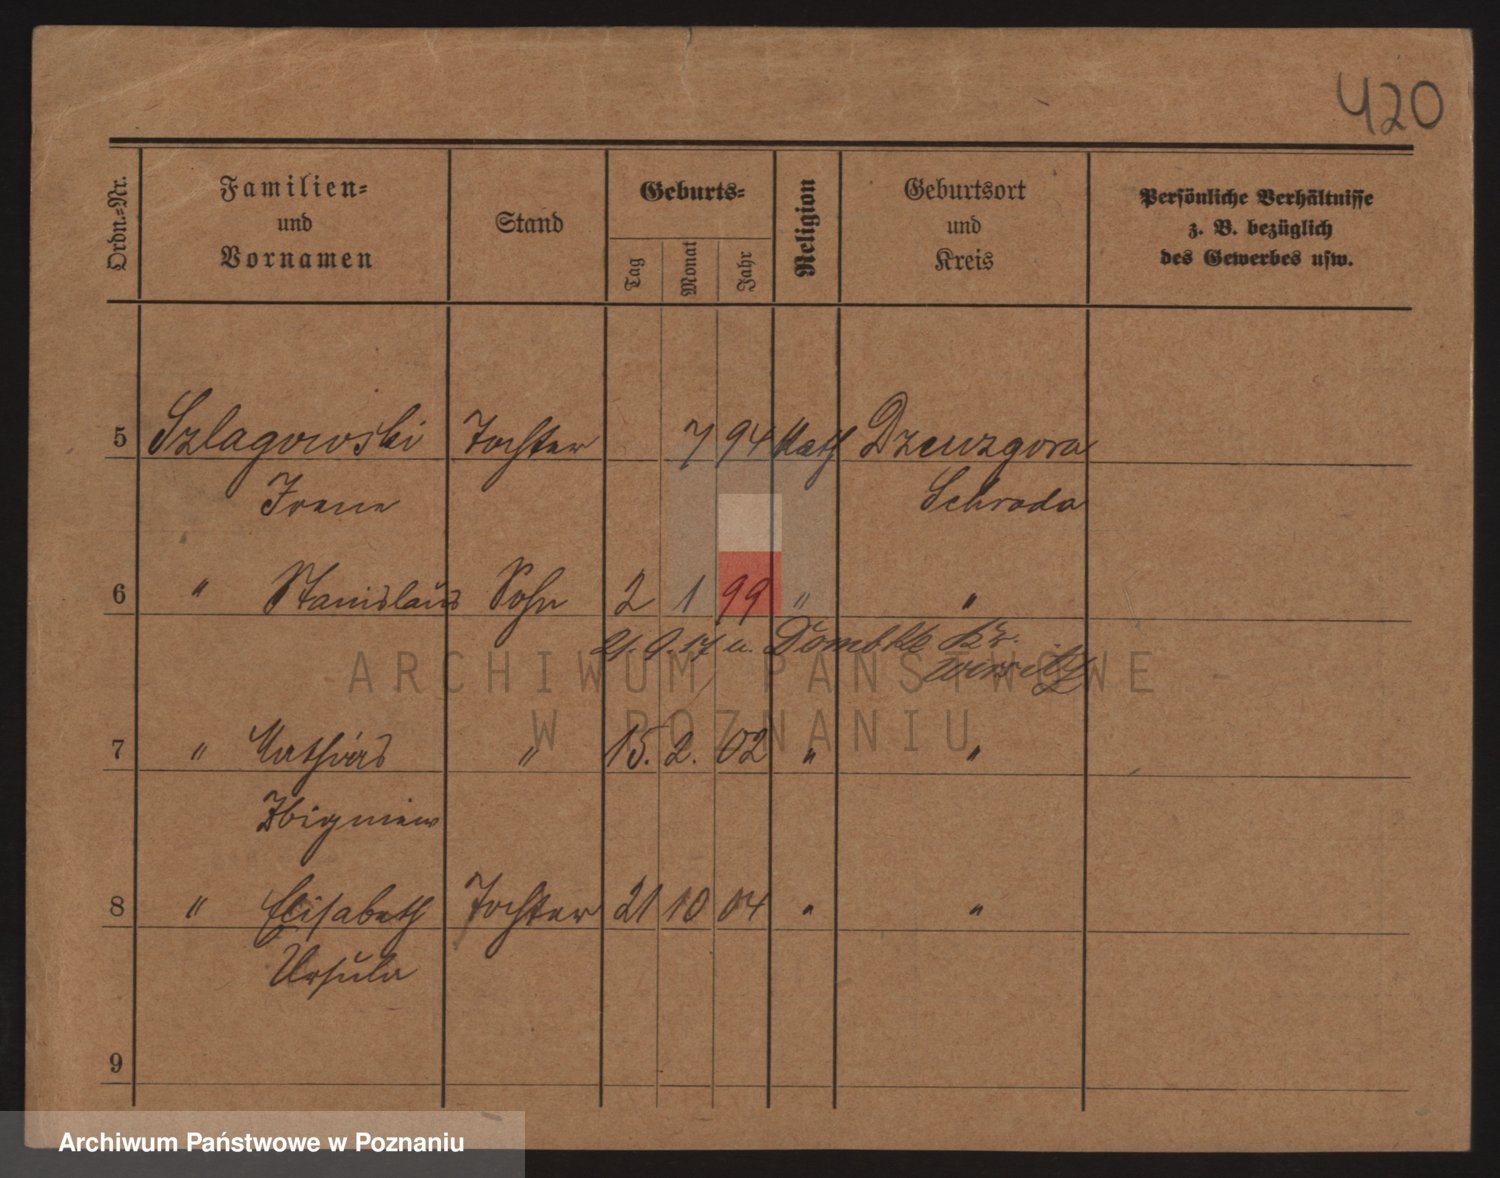 420
Ordn.=Nr.
Familien=
und
Vornamen
Stand
Geburts=
Tag
Monat
Jahr
Religion
Geburtsort
und
Kreis
Persönliche Verhältnisse
z. B. bezüglich
des Gewerbes usw.
5 Szlagowski Tochter 7 94 Kath Dzenzgora
Irene Schroda
6 " Stanislaus Sohn 2 1 99 " "
21. 9. 17 u. Dombke Kr.
Wirsitz
ARCHIWUM PAŃSTWOWE
W POZNANIU
7 " Mathias " 15. 2. 02 " "
Zbigniew
8 " Elisabeth Tochter 21 10 04 " "
Ursula
9
Archiwum Państwowe w Poznaniu